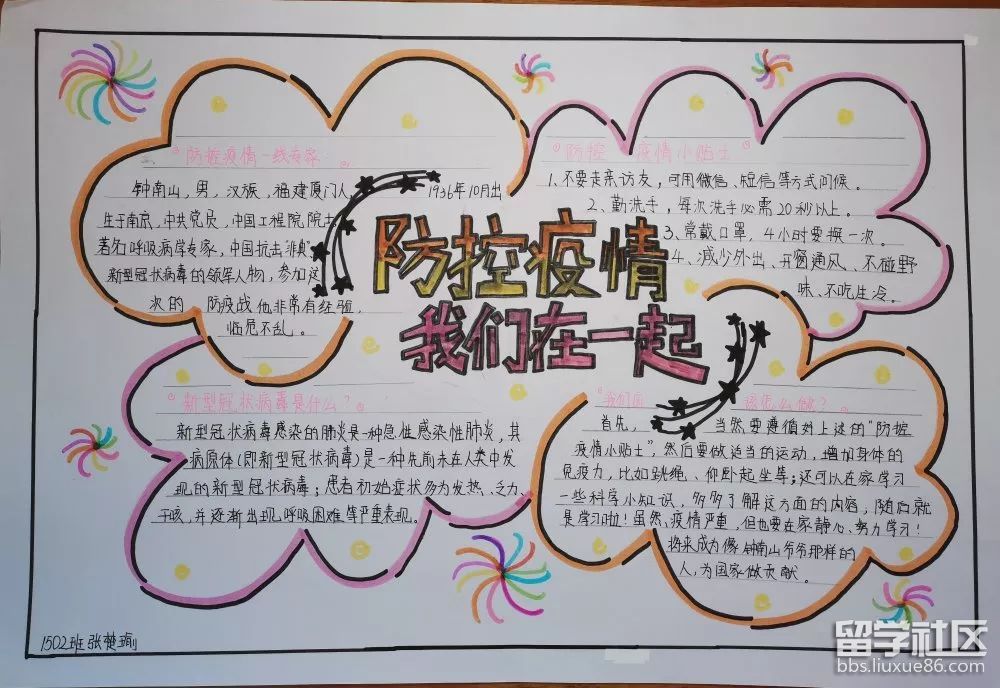 防控疫情
我们在一起
"防控疫情一线专家"
钟南山，男，汉族，福建厦门人，1936年10月出
生于南京，中共党员，中国工程院院士
著名呼吸病学专家，中国抗击"非典"
新型冠状病毒的领军人物，参加这
次的 防疫战他非常有经验，
临危不乱。
"防控 疫情小贴士"
1、不要走亲访友，可用微信、短信等方式问候。
2、勤洗手，每次洗手必需20秒以上。
3、常戴口罩，4小时要换一次。
4、减少外出、开窗通风、不碰野
味、不吃生冷。
"新型冠状病毒是什么？"
新型冠状病毒感染的肺炎是一种急性感染性肺炎，其
病原体(即新型冠状病毒)是一种先前未在人类中发
现的新型冠状病毒；患者初始症状多为发热、乏力、
干咳，并逐渐出现呼吸困难等严重表现。
"我们 该怎么做？"
首先， 当然要遵值对上述的"防控
疫情小贴士"，然后要做适当的运动，增加身体的
免疫力，比如跳绳、仰卧起坐等；还可以在家学习
一些科学小知识，多多了解这方面的内容，随后就
是学习啦！虽然、疫情严重，但也要在家静心、努力学习！
将来成为像钟南山爷爷那样的
人，为国家做贡献。
1502班 张楚
留学社区
bbs.liuxue86.com